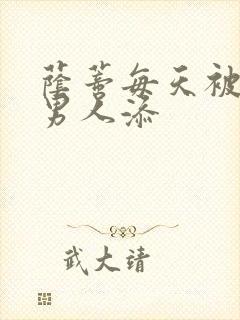 蔭蒂每天被
男人添
武大靖